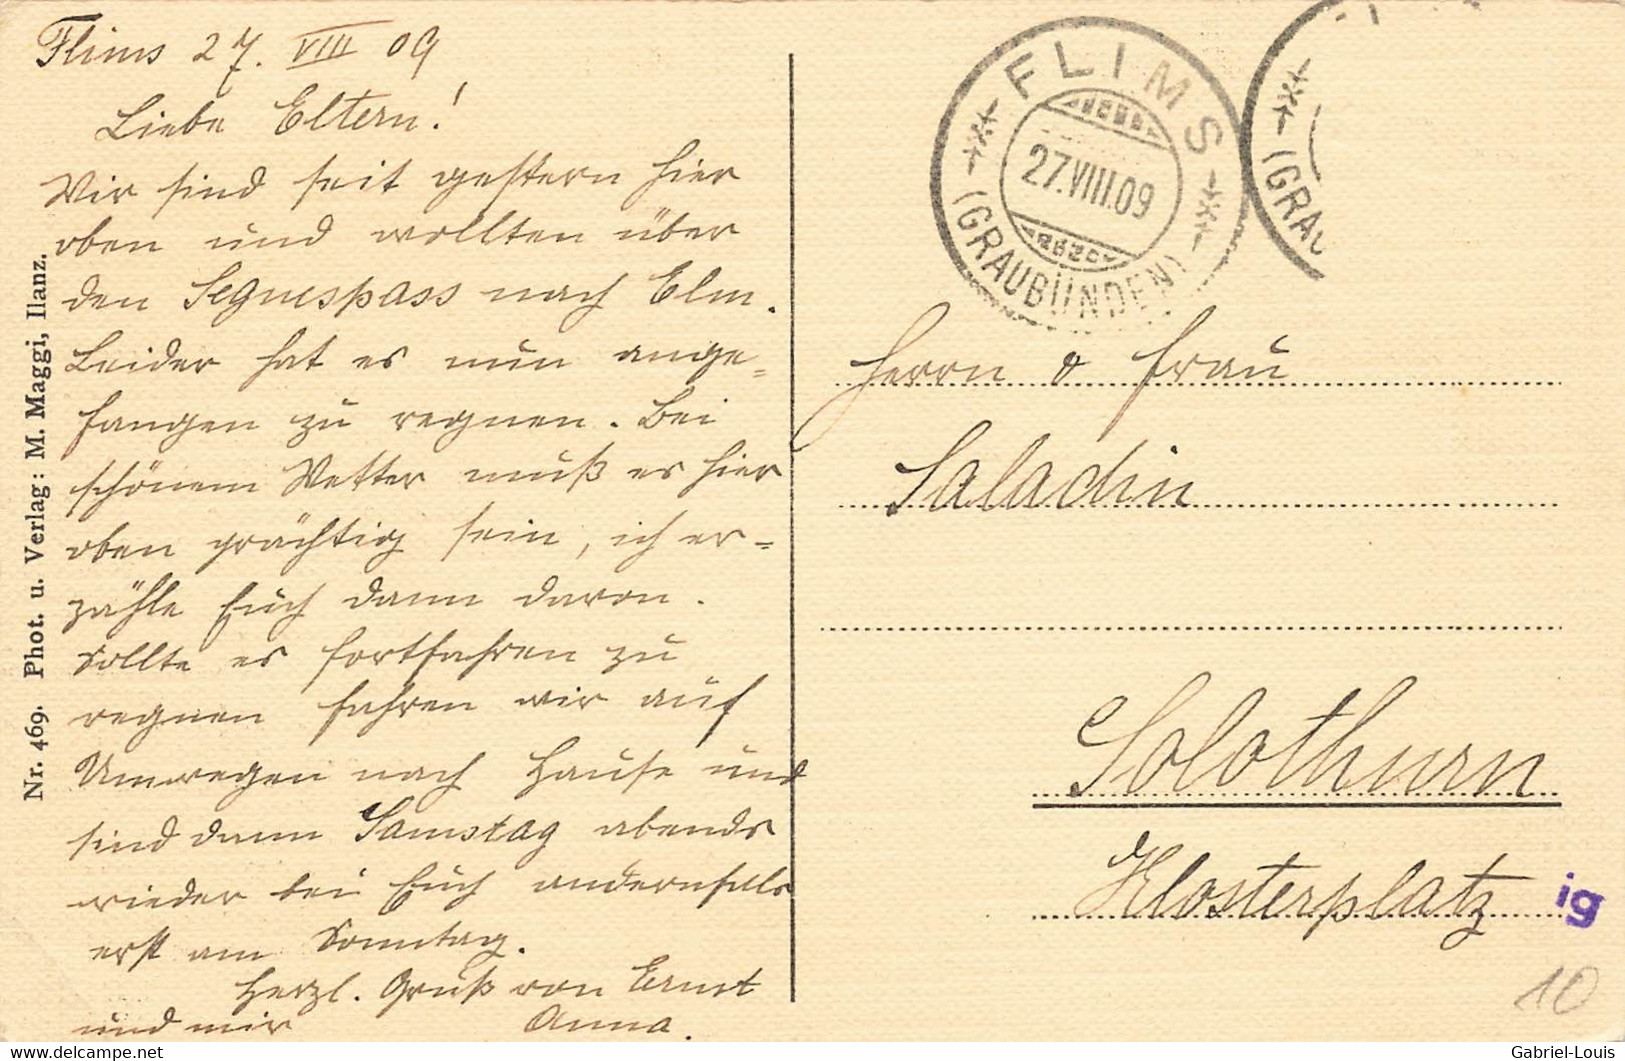 Flims 27. VIII 09
Liebe Eltern!
Wir sind seit gestern hier
oben und wollten über
den Segnespass nach Elm.
Leider hat es nun ange=
fangen zu regnen. Bei
schönem Wetter muß es hier
oben prächtig sein, ich er=
zähle Euch dann davon.
Sollte es fortfahren zu
regnen fahren wir auf
Umwegen nach Hause und
sind dann Samstag abends
wieder bei Euch andernfalls
erst am Sonntag.
Herzl. Gruß von Ernst
und mir Anna.
Nr. 469. Phot. u. Verlag: M. Maggi, Ilanz.
FLIMS
27.VIII.09
(GRAUBÜNDEN)
(GRAU
Herrn & Frau
Saladin
Solothurn
Klosterplatz
ig
10
Gabriel-Louis